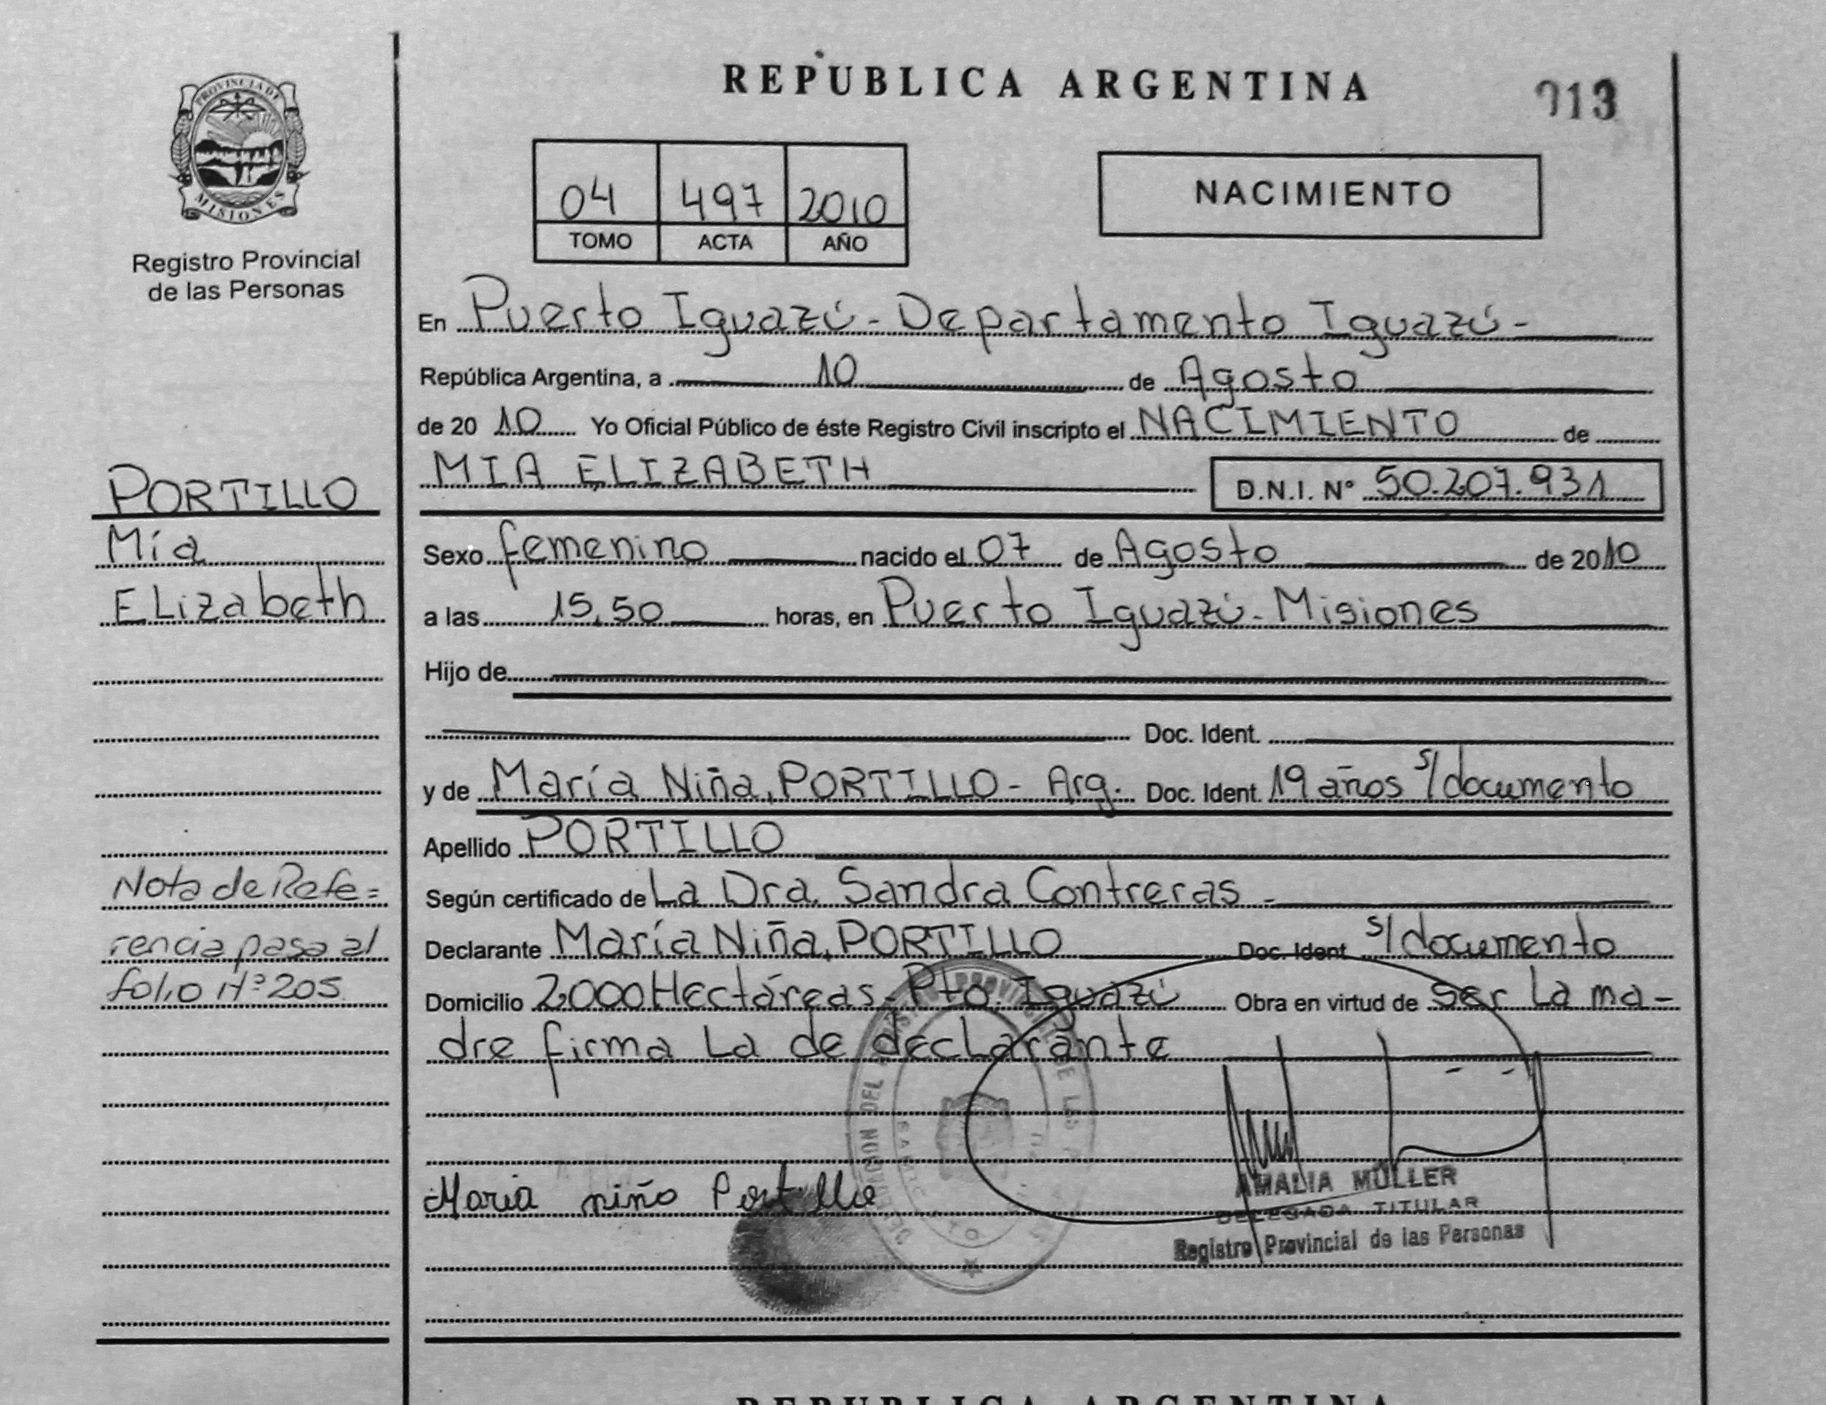 REPUBLICA ARGENTINA
013
PROVINCIA DE
MISIONES
Registro Provincial
de las Personas
04 497 2010
TOMO ACTA AÑO
NACIMIENTO
En Puerto Iguazú - Departamento Iguazú -
República Argentina, a 10 de Agosto
de 20 10 Yo Oficial Público de éste Registro Civil inscripto el NACIMIENTO de
MIA ELIZABETH D.N.I. N° 50.207.931
PORTILLO
Mía
ELizabeth
Sexo femenino nacido el 07 de Agosto de 2010
a las 15,50 horas, en Puerto Iguazú - Misiones
Hijo de
Doc. Ident.
y de María Niña, PORTILLO - Arg. Doc. Ident. 19 años s/documento
Apellido PORTILLO
Según certificado de La Dra. Sandra Contreras -
Declarante María Niña, PORTILLO Doc. Ident s/documento
Domicilio 2.000 Hectáreas - Pto. Iguazú Obra en virtud de ser La ma-
dre firma La de declarante
Nota de Refe=
rencia pasa al
folio Nº 205
Maria niño Portillo
AMALIA MÜLLER
DELEGADA TITULAR
Registro Provincial de las Personas
REPUBLICA ARGENTINA